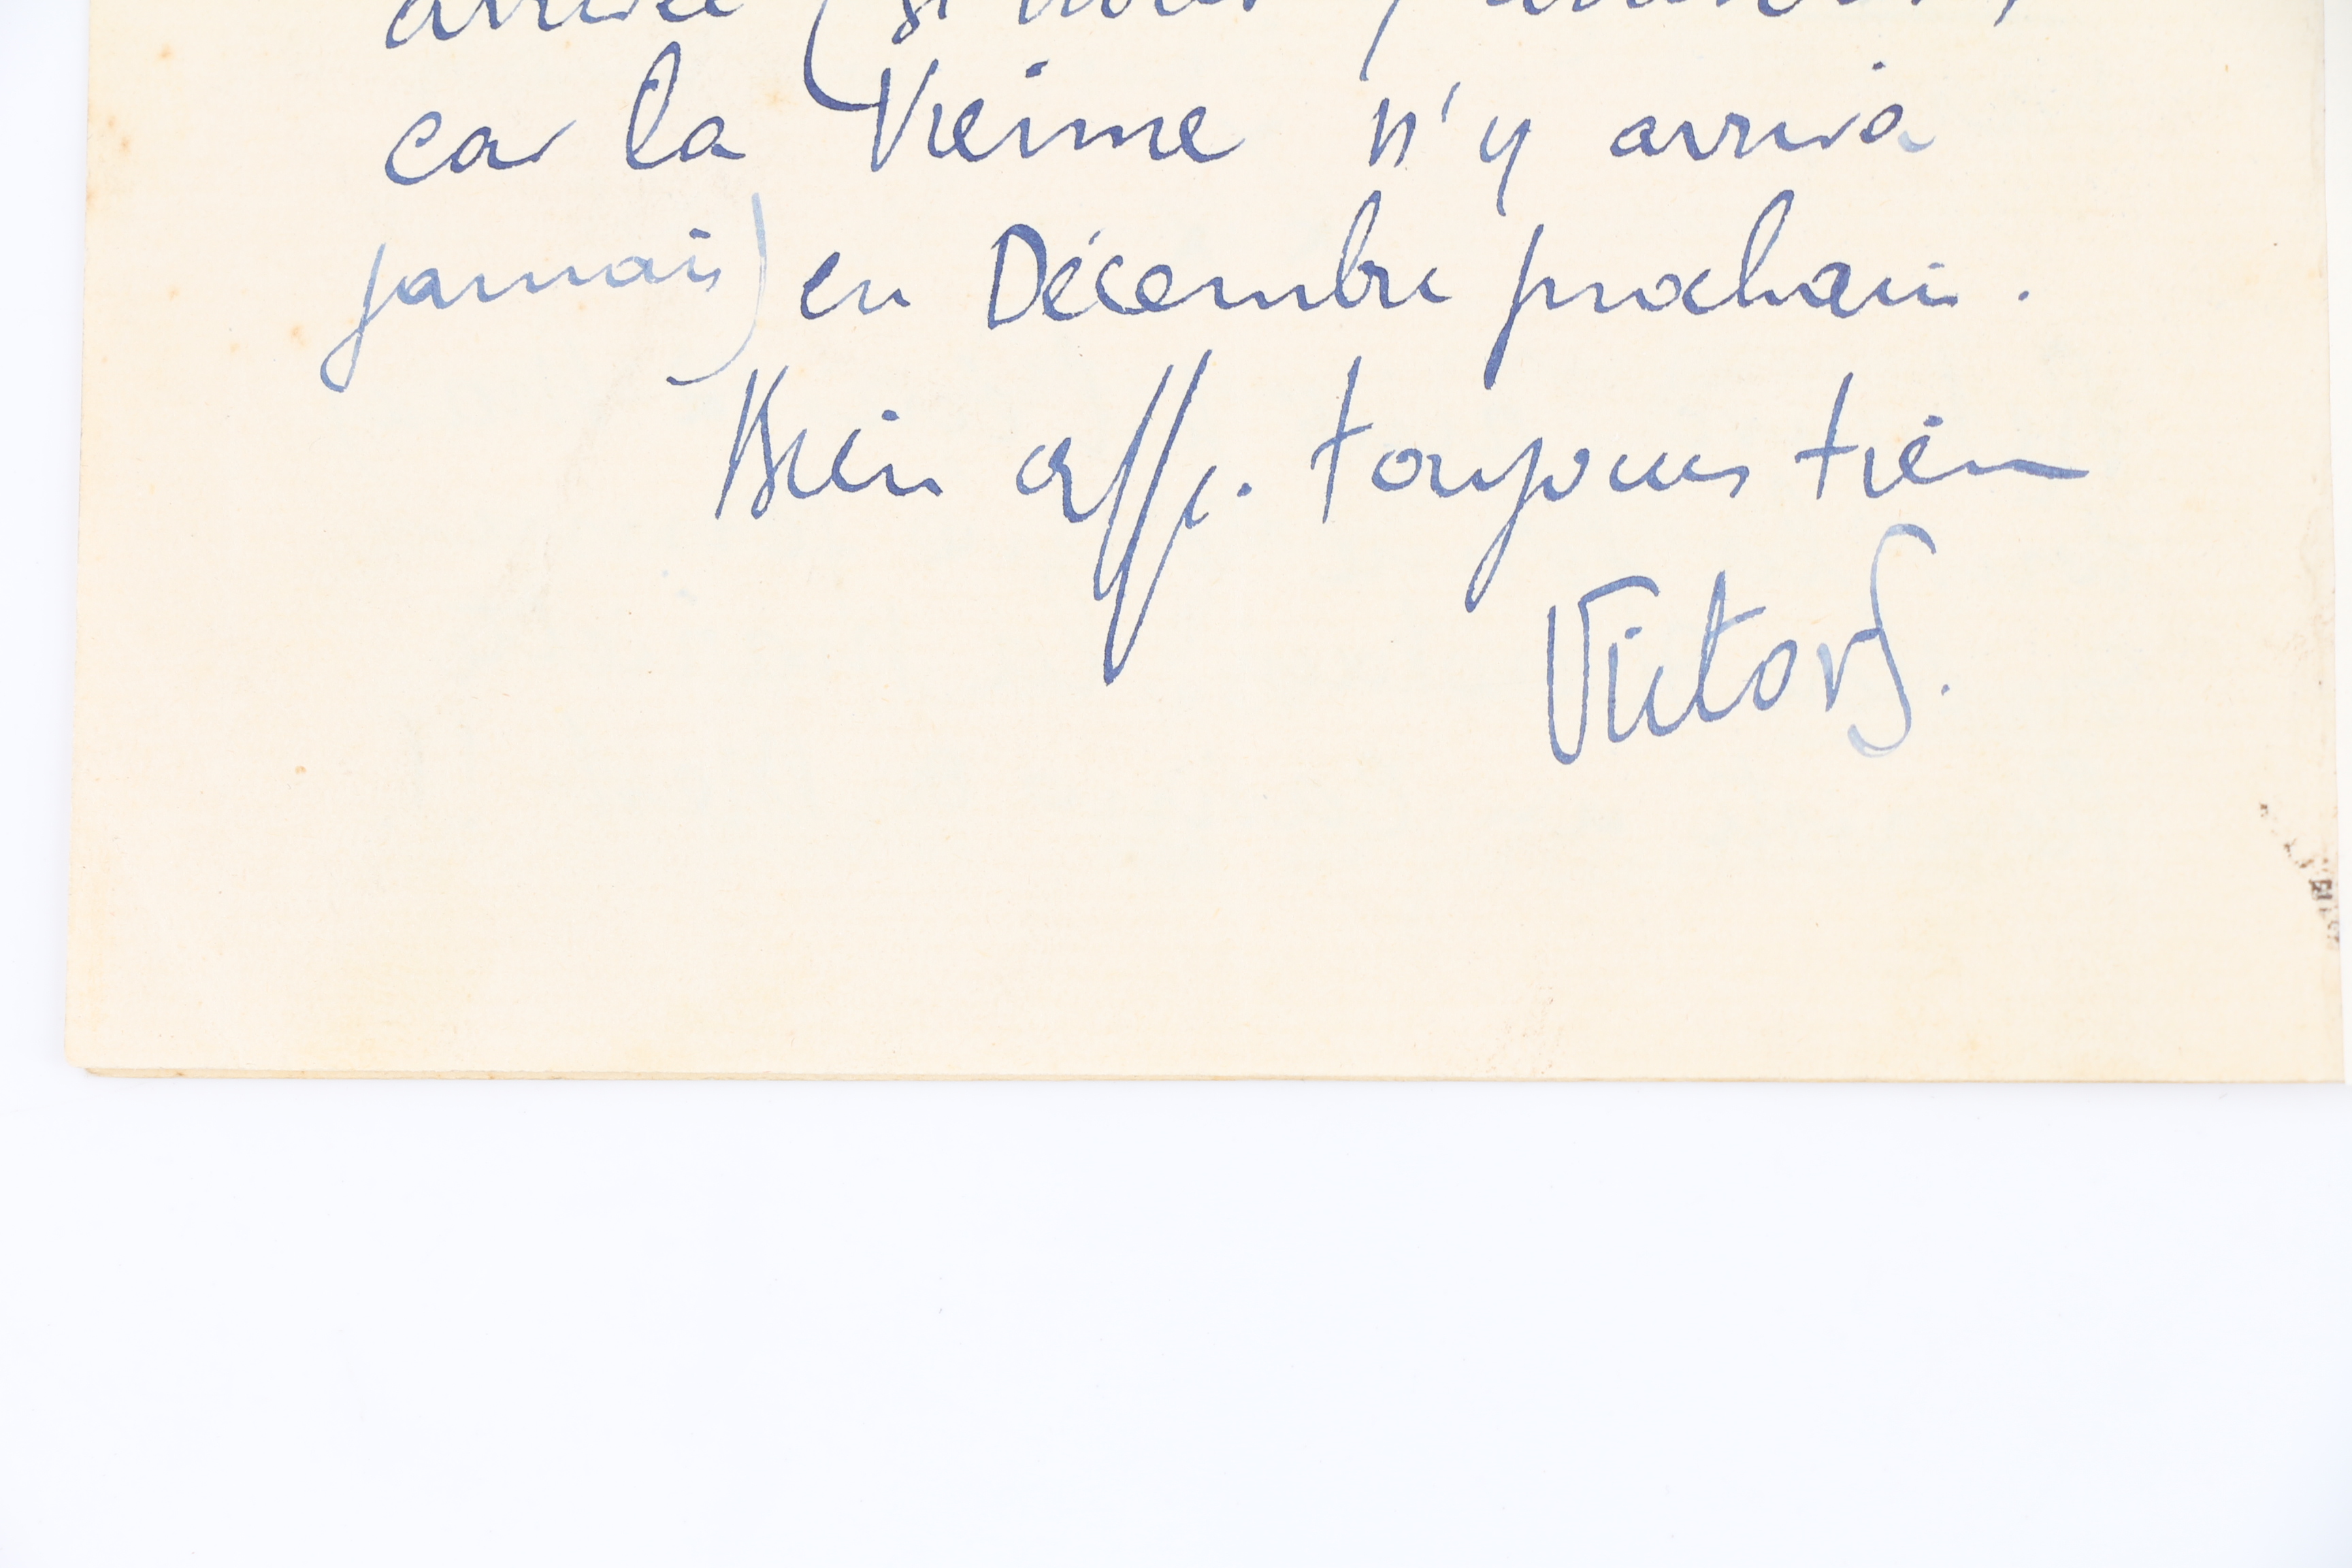 arrivée (si nous y
car la Vienne n'y arriva
jamais) en Décembre prochain.
Bien aff. toujours tien
Victor S.